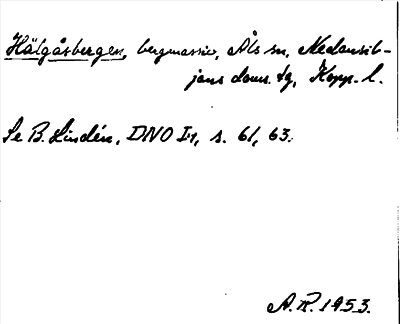 Hälgåsbergen, bergmassiv, Åls sn, Nedansil-
jans doms. tg, Kopp. l.
Se B. Lindén, DNO I:1, s. 61, 63.
A.R. 1953.